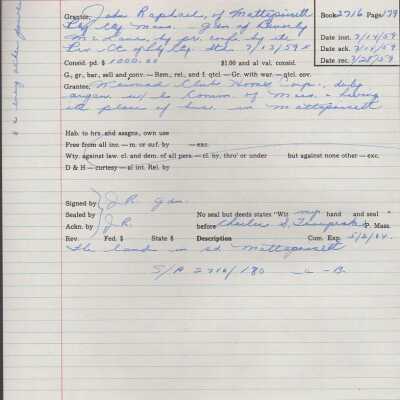 Grantor: John Raphael, of Mattapoisett
Book 2716 Page 179
Ply Cty Mass. - Gdn of Beverly
Date inst. 7/14/59
Date ack. 7/14/59
Date rec. 7/28/59
Pro. Ct of Ply Cty. dtd. 7/13/59
Consid. pd. $ 1000.00 $1.00 and al val. consid.
G., gr., bar., sell and conv. — Rem., rel., and f. qtcl — Gr. with war. — qtcl. cov.
Grantee, Club Homes duly
organ. Comm. of Mass. & having
its place of bus. in Mattapoisett
Hab. to hrs and assgns., own use
Free from all inc. — m. or suf. by — exc.
Wty. against law. cl. and dem. of all pers. — cl. by, thro' or under but against none other — exc.
D & H — curtesy — al int. Rel. by
Signed by J.R. gdn.
Sealed by No seal but deeds states "Wit my hand and seal"
Ackn. by J.R. before Charles S. P. Mass.
Rev. Fed. $ State $ Description Com. Exp. 5/2/64
The land in sd Mattapoisett
S/P 2716/180